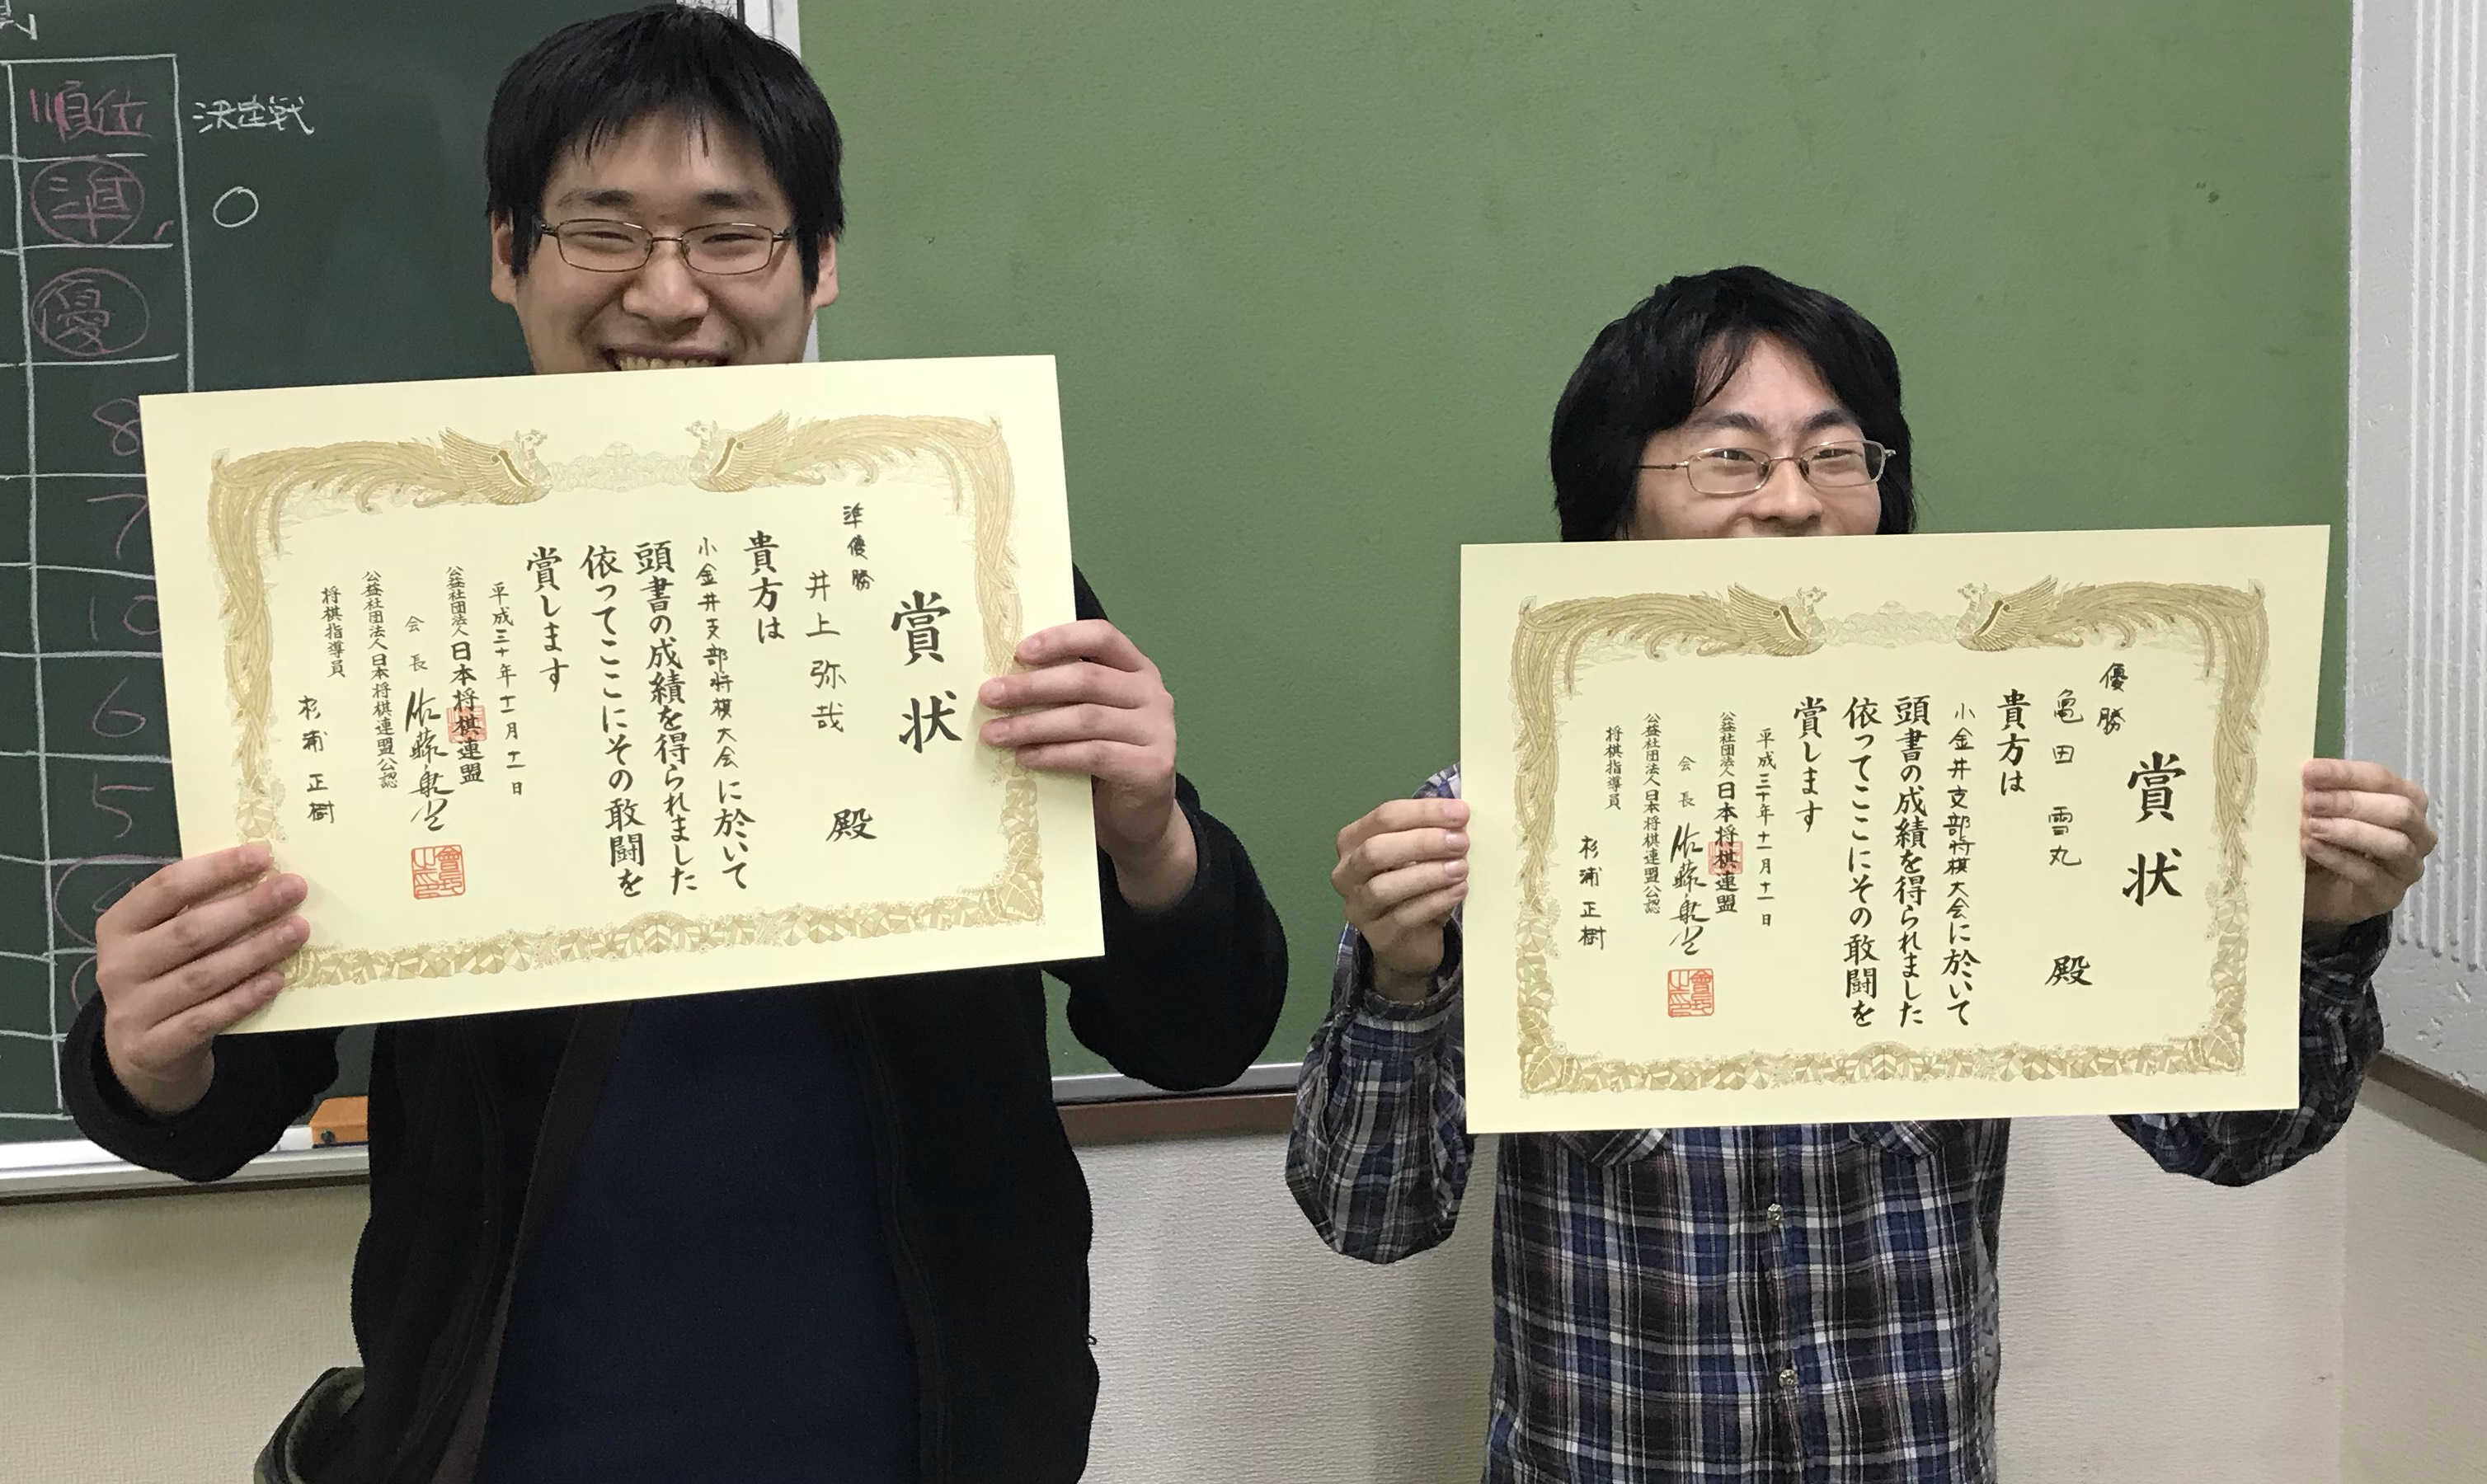 順位
決定戦
準
○
優
8
7
10
6
5
賞状
準優勝
井上弥哉 殿
貴方は
小金井支部将棋大会に於いて
頭書の成績を得られました
依ってここにその敢闘を
賞します
平成三十年十一月十一日
公益社団法人日本将棋連盟
会長 佐藤康光
公益社団法人日本将棋連盟公認
将棋指導員
杉浦正樹
賞状
優勝
亀田雪丸 殿
貴方は
小金井支部将棋大会に於いて
頭書の成績を得られました
依ってここにその敢闘を
賞します
平成三十年十一月十一日
公益社団法人日本将棋連盟
会長 佐藤康光
公益社団法人日本将棋連盟公認
将棋指導員
杉浦正樹